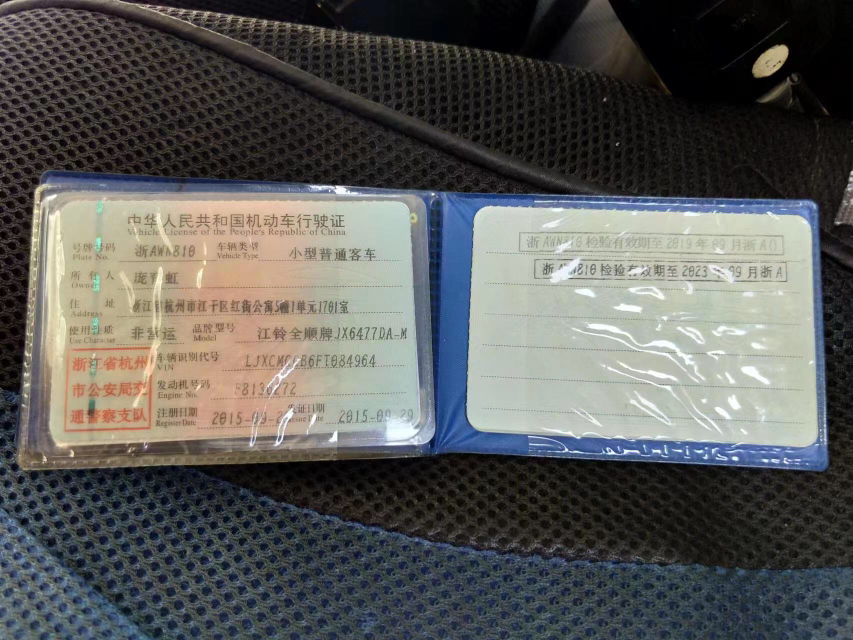 中华人民共和国机动车行驶证
Vehicle License of the People's Republic of China
号牌号码 Plate No. 浙AWN810 车辆类型 Vehicle Type 小型普通客车
所有人 Owner 庞 虹
住址 Address 浙江省杭州市江干区红街公寓5幢1单元1701室
使用性质 Use Character 非营运 品牌型号 Model 江铃全顺牌JX6477DA-M
浙江省杭州
市公安局交
通警察支队
车辆识别代号 VIN
发动机号码 Engine No.
注册日期 Register Date 发证日期 Issue Date 2015-09-29
浙AWN810 检验有效期至 2019年09月浙A
浙AWN810 检验有效期至 2023年09月浙A